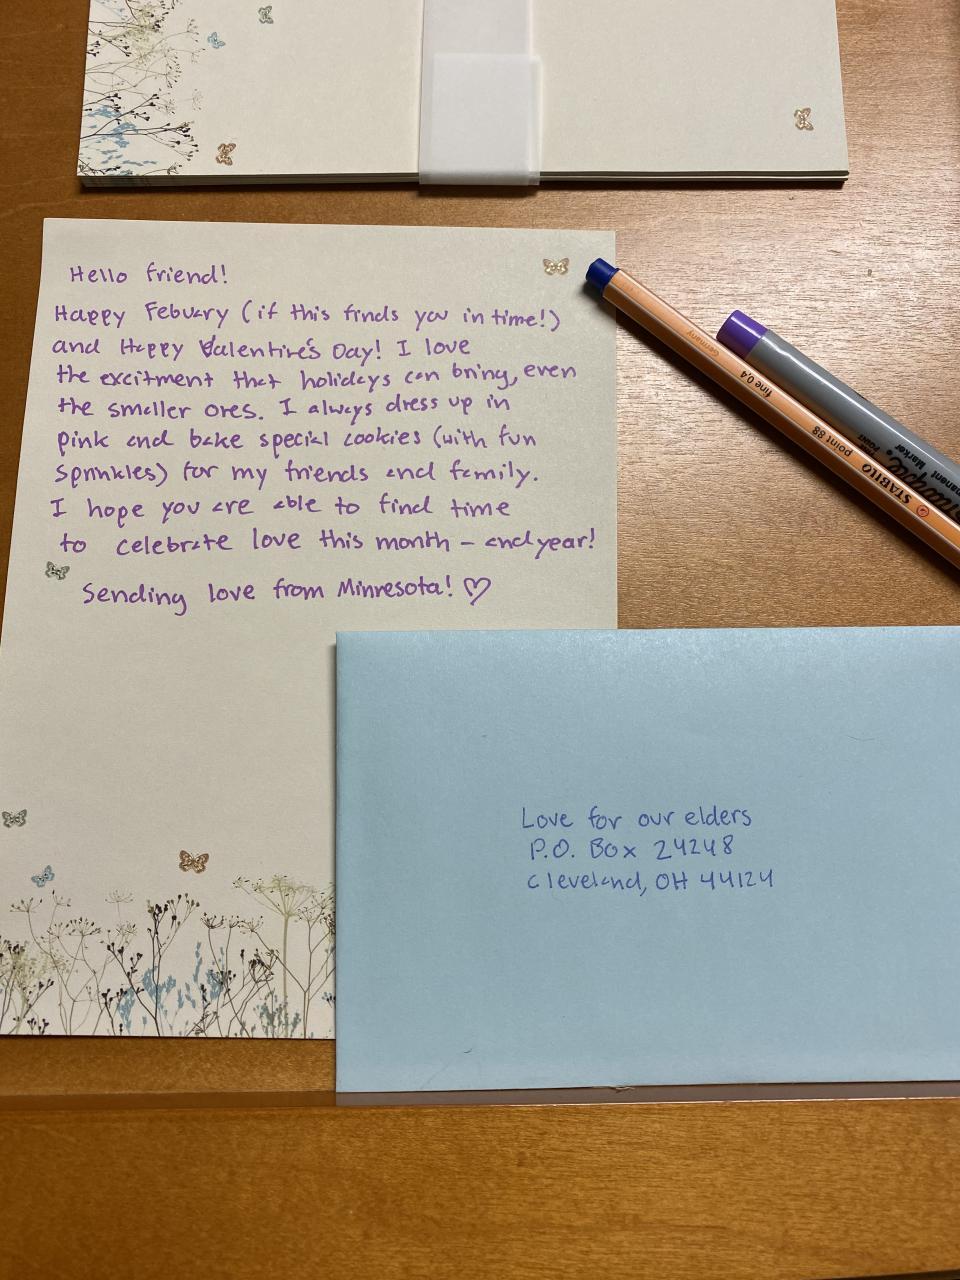 Hello friend!
Happy Febuary (if this finds you in time!)
and Happy Valentine's Day! I love
the excitment that holidays can bring, even
the smaller ones. I always dress up in
pink and bake special cookies (with fun
sprinkles) for my friends and family.
I hope you are able to find time
to celebrate love this month - and year!
Sending love from Minnesota! ♡
Germany
fine 0,4
point 88
STABILO
Marker
Love for our elders
P.O. Box 24248
Cleveland, OH 44124